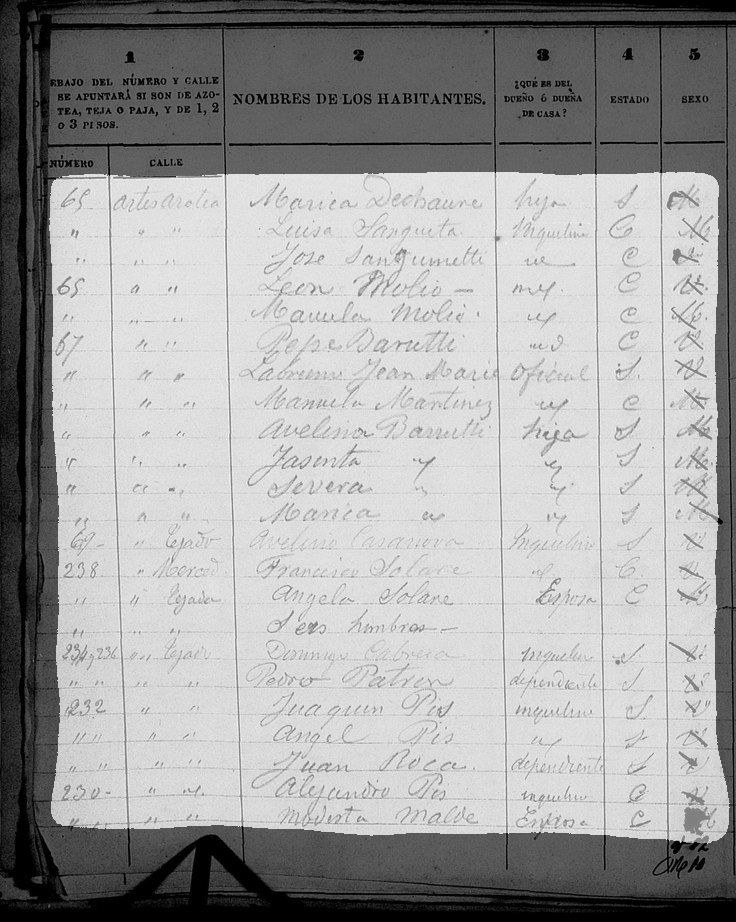 1 2 3 4 5
DEBAJO DEL NÚMERO Y CALLE SE APUNTARÁ SI SON DE AZOTEA, TEJA O PAJA, Y DE 1, 2 O 3 PISOS.
NOMBRES DE LOS HABITANTES.
¿QUÉ ES DEL DUEÑO Ó DUEÑA DE CASA?
ESTADO
SEXO
NÚMERO CALLE
65 artes Marica Dechaure hija S
" " " Luisa Sangueta Inquelino C M
" " " Jose Sanguinetti C
65 " " Leon Molio — C
" " " Manuela Molio C M
67 " " Pepe Barutti C V
" " " Jean Marie Oficial S. V
" " " Manuela Martinez C M
" " " Avelina Barrutti hija S M
" " " Jasinta " " S M
" " " Severa " " S M
" " " Marica " " S M
69 - " Tejado Avelino Casanova Inquelino S V
238 " Merced Francisco Solare C. V
" " Tejada Angela Solare Esposa C M
" " " Seis hombres —
234 y 236 " " Tejado Domingo Cabrera inquelino S. V
" " " " Pedro Patron dependiente S V
232 " " Juaquin Pis inquelino S. V
" " " " Angel Pis " S V
" " " " Juan Roca dependiente S V
230 - " " Alejandro Pis inquelino C V
" " " " Modesta Malde Esposa C M